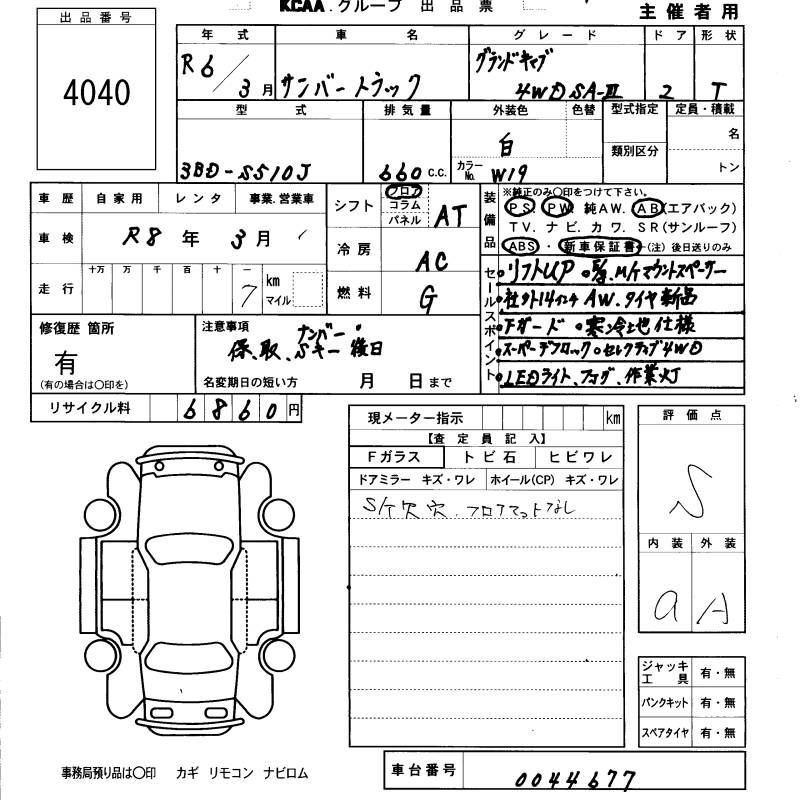 KCAA.グループ 出品票
主催者用
出品番号
4040
年式 車名 グレード ドア 形状
R6/3月 サンバートラック グランドキャブ 4WD SA-Ⅲ 2 T
型式 排気量 外装色 色替 型式指定 定員・積載
3BD-S510J 660 C.C. 白 カラーNo. W19 類別区分 名 トン
車歴 自家用 レンタ 事業.営業車
車検 R8年 3月
走行 十万 万 千 百 十 一 7 km マイル
シフト フロア コラム パネル AT
冷房 AC
燃料 G
装備品
※純正のみ〇印をつけて下さい。
PS PW 純AW. AB(エアバック)
TV.ナビ.カワ.SR(サンルーフ)
ABS・新車保証書(注)後日送りのみ
セールスポイント
・リフトUP M/Tマウントスペーサー
・社外14インチAW.タイヤ新品
・Fガード ・寒冷地仕様
・スーパーデフロック・セレクティブ4WD
・LEDライト、フォグ、作業灯
修復歴 箇所
有
(有の場合は〇印を)
注意事項
ナンバー・
保、取、Sキー後日
名変期日の短い方 月 日まで
リサイクル料 6860円
現メーター指示 km
【査定員記入】
Fガラス トビ石 ヒビワレ
ドアミラー キズ・ワレ ホイール(CP) キズ・ワレ
S/ケ穴.フロアマットなし
評価点
S
内装 外装
a A
ジャッキ工具 有・無
パンクキット 有・無
スペアタイヤ 有・無
事務局預り品は〇印 カギ リモコン ナビロム
車台番号 0044677